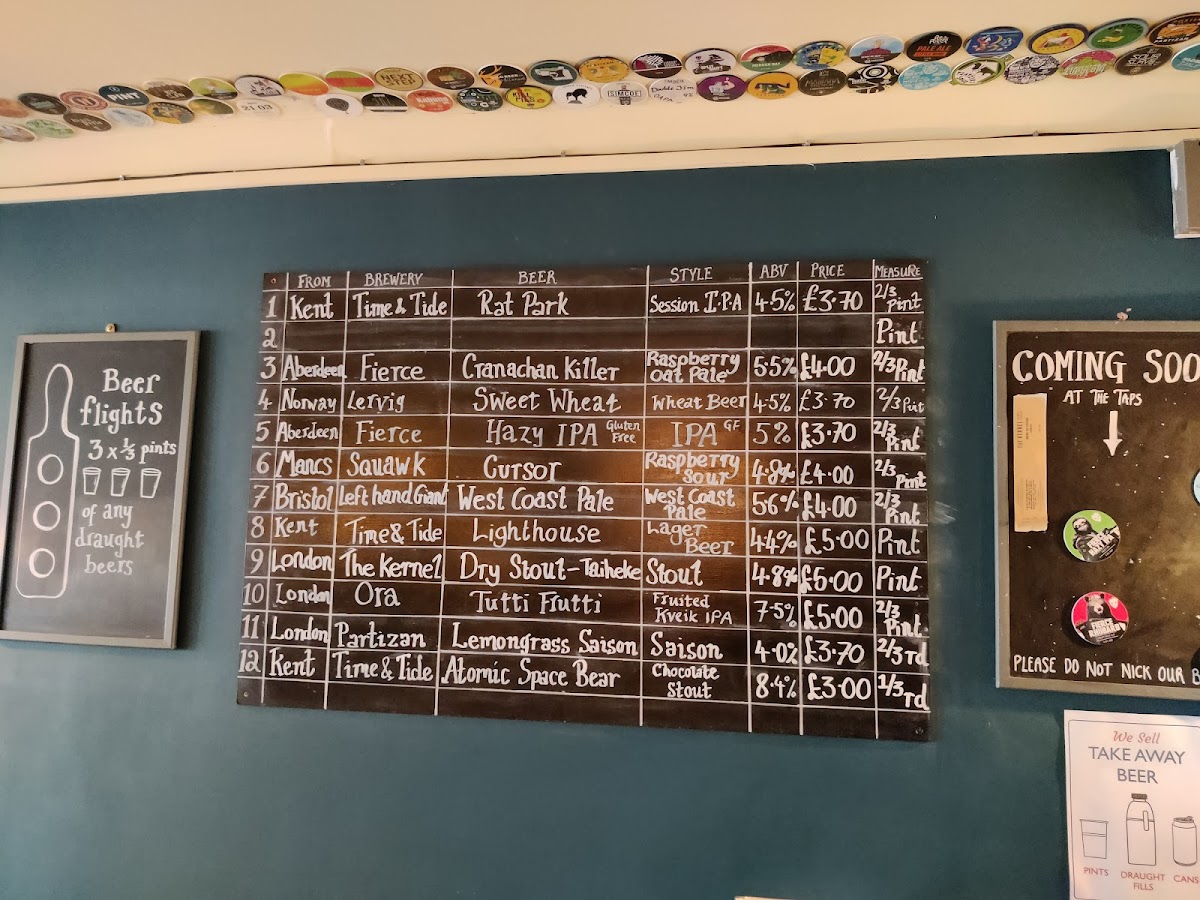 FROM BREWERY BEER STYLE ABV PRICE MEASURE
1 Kent Time & Tide Rat Park Session I.P.A 4.5% £3.70 2/3 Pint
2 Pint
3 Aberdeen Fierce Cranachan Killer Raspberry Oat Pale 5.5% £4.00 2/3 Pint
4 Norway Lervig Sweet Wheat Wheat Beer 4.5% £3.70 2/3 Pint
5 Aberdeen Fierce Hazy IPA Gluten Free IPA GF 5% £3.70 2/3 Pint
6 Mancs Squawk Cursor Raspberry Sour 4.8% £4.00 2/3 Pint
7 Bristol Left hand Giant West Coast Pale West Coast Pale 5.6% £4.00 2/3 Pint
8 Kent Time & Tide Lighthouse Lager Beer 4.4% £5.00 Pint
9 London The Kernel Dry Stout - Taiheke Stout 4.8% £5.00 Pint
10 London Ora Tutti Frutti Fruited Kveik IPA 7.5% £5.00 2/3 Pint
11 London Partizan Lemongrass Saison Saison 4.0% £3.70 2/3 Td
12 Kent Time & Tide Atomic Space Bear Chocolate Stout 8.4% £3.00 1/3 Td
Beer
flights
3 x ⅓ pints
of any
draught
beers
COMING SOO
AT THE TAPS
FIERCE
PLEASE DO NOT NICK OUR B
We Sell
TAKE AWAY
BEER
PINTS DRAUGHT FILLS CANS
PINT
21.03
SIMCOE
PALE ALE
PARTIZAN